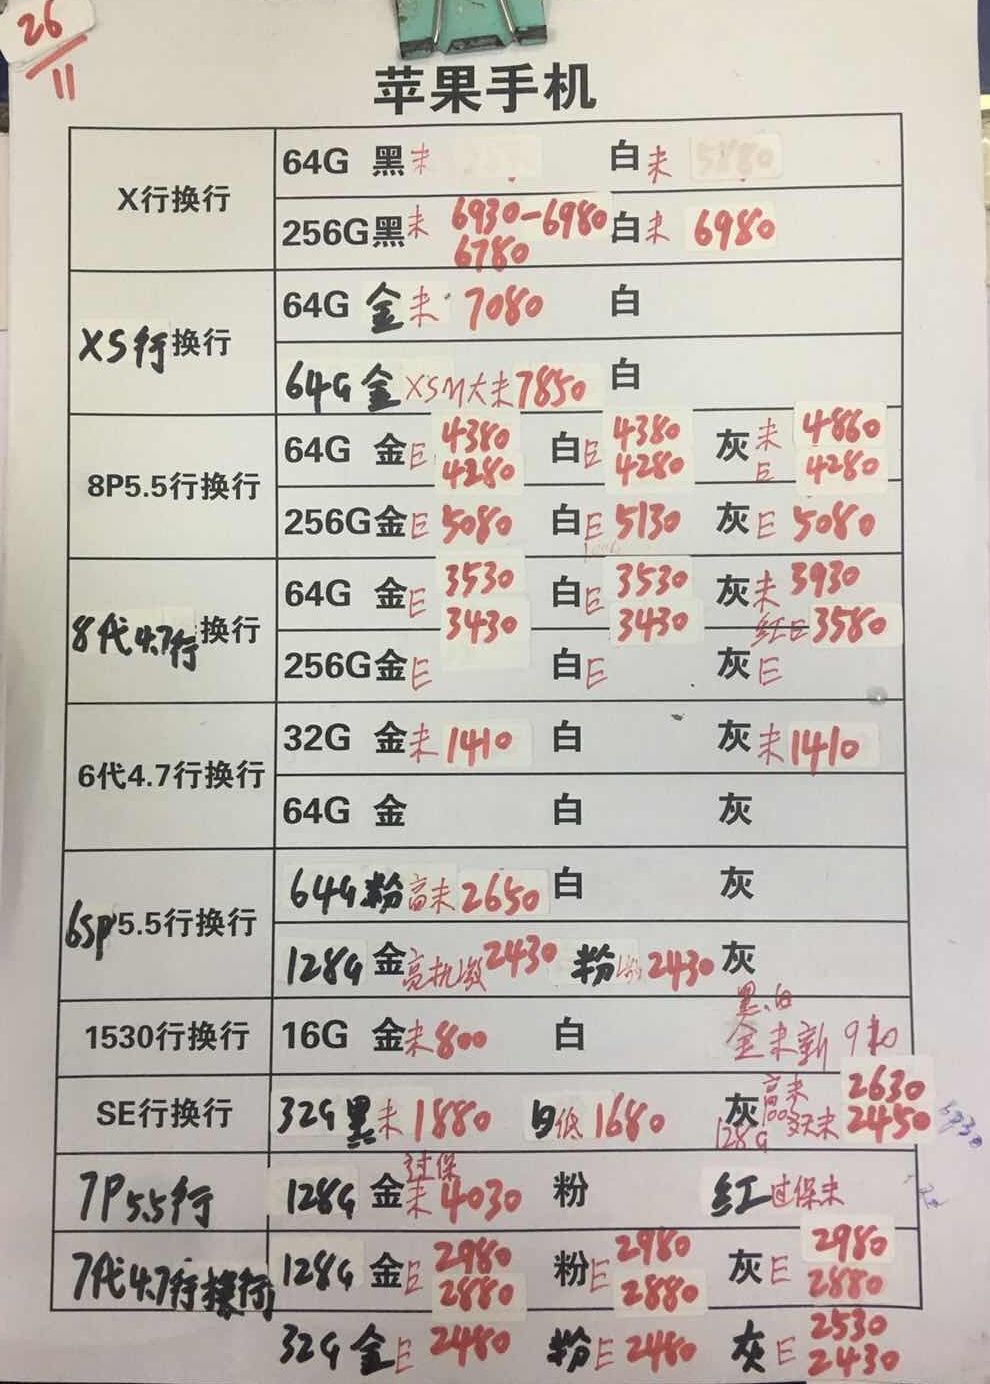 26/11
苹果手机
X行换行
64G 黑未 白未
256G黑未 6930-6980 6780 白未 6980
XS行换行
64G 金未 7080 白
64G 金 XSM大未7850 白
8P5.5行换行
64G 金E 4380 4280 白E 4380 4280 灰 未 4860 E 4280
256G金E 5080 白E 5130 灰E 5080
8代4.7行换行
64G 金E 3530 3430 白E 3530 3430 灰未 3930 红E 3580
256G金E 白E 灰E
6代4.7行换行
32G 金未1410 白 灰未1410
64G 金 白 灰
6SP5.5行换行
64G 粉高未2650 白 灰
128G 金高机激2430 粉 2430 灰
1530行换行
16G 金未800 白 黑.白 金未新
SE行换行
32G 黑未1880 白低1680 灰 高未 2630 128G 未 2450
7P5.5行
128G 金 过保 未 4030 粉 红过保未
7代4.7行换行
128G 金E 2980 2880 粉E 2980 2880 灰E 2980 2880
32G 金E 2480 粉E 2480 灰E 2530 2430